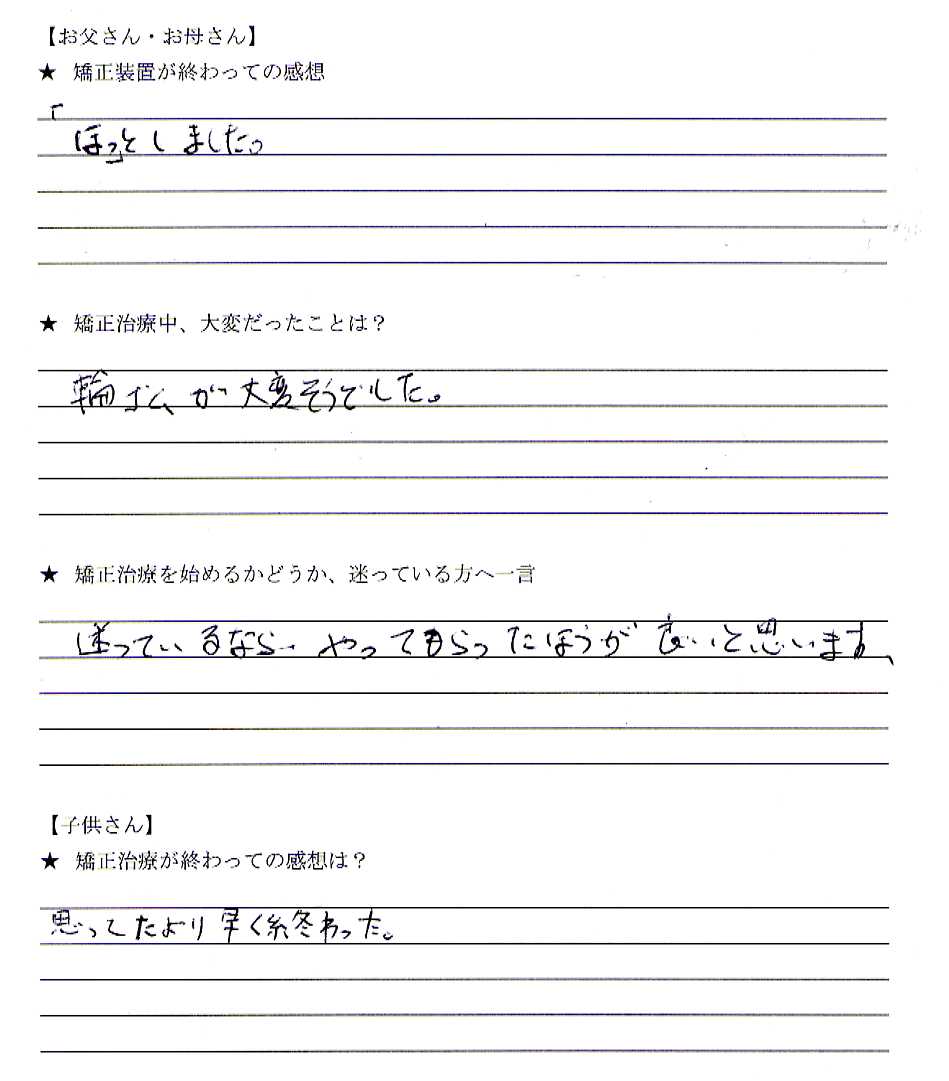 【お父さん・お母さん】
★ 矯正装置が終わっての感想
「ほっ」としました。
★ 矯正治療中、大変だったことは？
輪ゴムが大変そうでした。
★ 矯正治療を始めるかどうか、迷っている方へ一言
迷っているなら… やってもらったほうが良いと思います、
【子供さん】
★ 矯正治療が終わっての感想は？
思ってたより早く終わった。